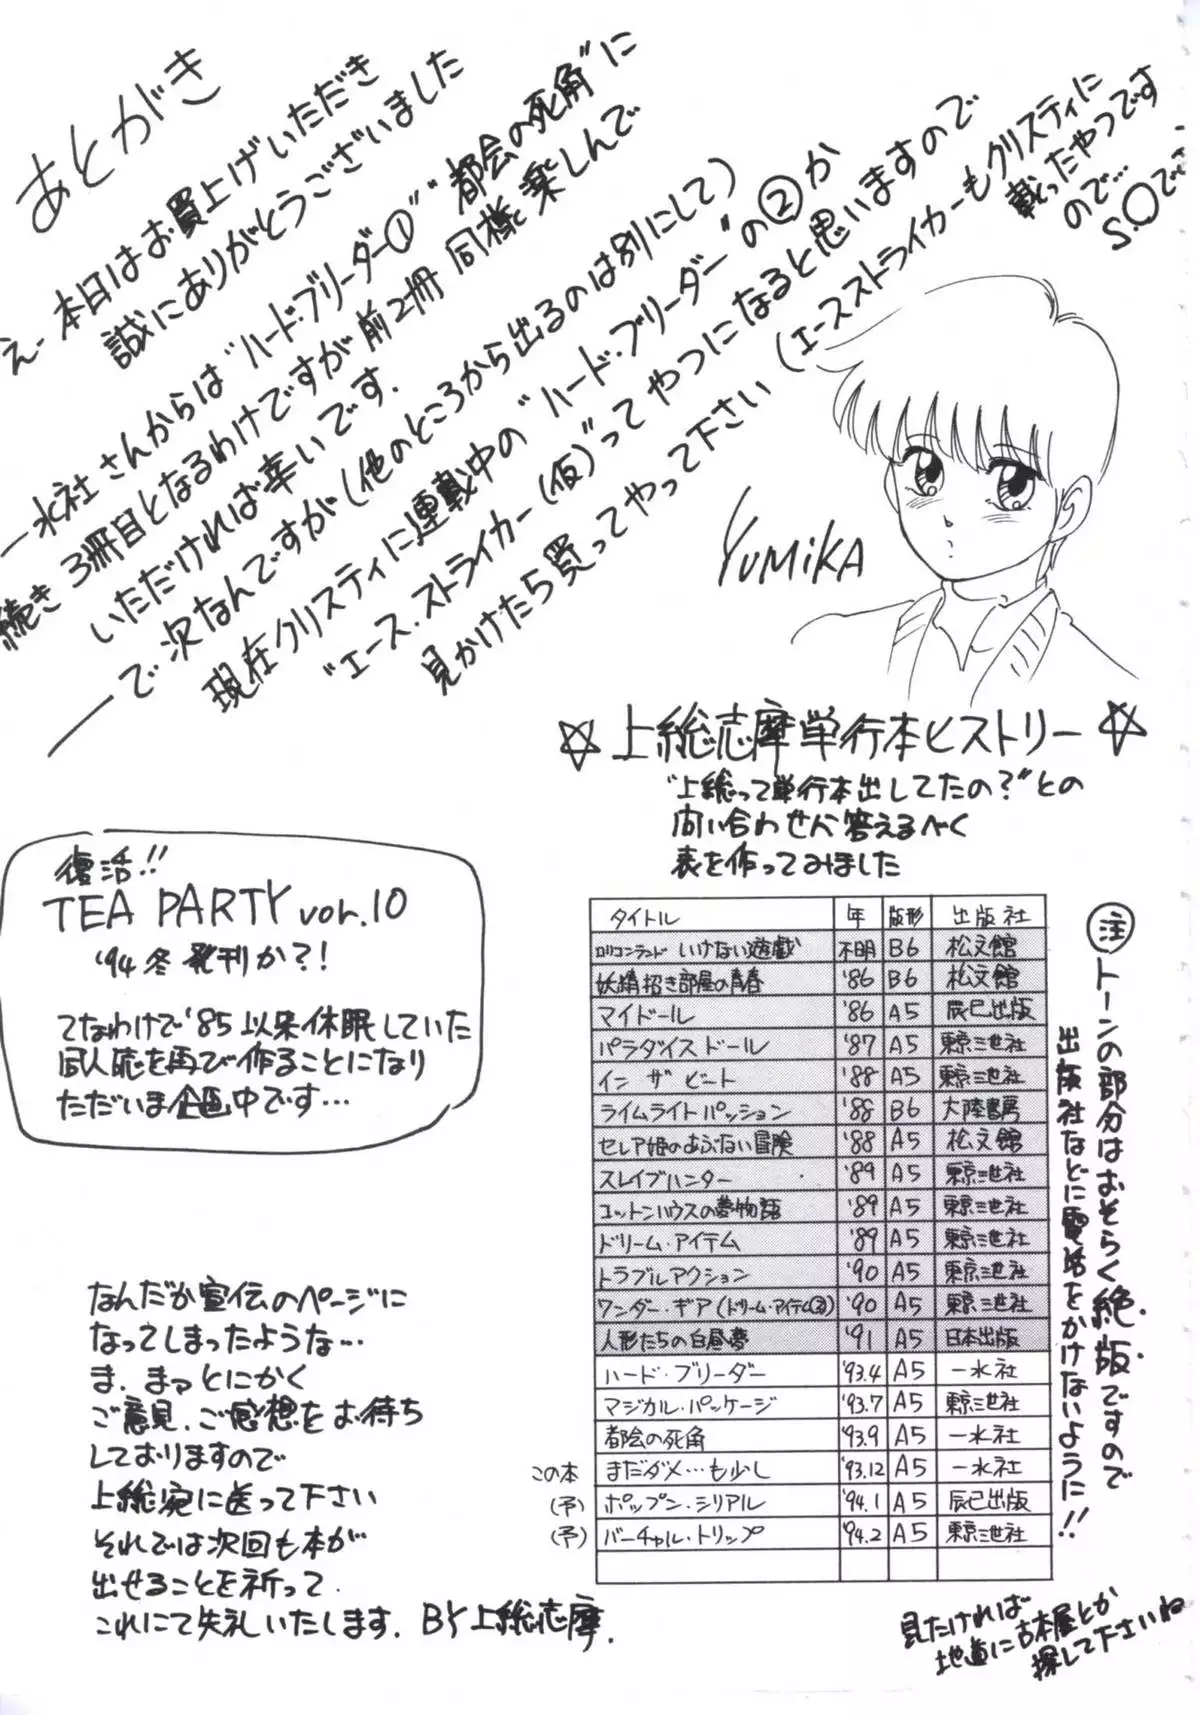 あとがき
え-本日はお買上げいただき
誠にありがとうございました
一水社さんからは"ハード・ブリーダー①""都会の死角"に
続き3冊目となるわけですが前2冊同様楽しんで
いただければ幸いです.
で次なんですが(他のところから出るのは別にして)
現在クリスティに連載中の"ハード・ブリーダー"の②か
"エース.ストライカー(仮)"ってやつになると思いますので
見かけたら買ってやって下さい(エースストライカーもクリスティに
載ったやつです
ので…
S.○で
YUMiKA
☆上総志摩単行本ヒストリー☆
"上総って単行本出してたの?"との
問い合わせに答えるべく
表を作ってみました
復活!!
TEA PARTY vol.10
'94冬発刊か?!
てなわけで'85以来休眠していた
同人誌を再び作ることになり
ただいま企画中です…
タイトル 年 版形 出版社
ロリコンランド いけない遊戯 不明 B6 松文館
妖精招き部屋の青春 '86 B6 松文館
マイドール '86 A5 辰巳出版
パラダイスドール '87 A5 東京三世社
イン ザ ビート '88 A5 東京三世社
ライムライトパッション '88 B6 大陸書房
セレア姫のあぶない冒険 '88 A5 松文館
スレイブハンター '89 A5 東京三世社
コットンハウスの夢物語 '89 A5 東京三世社
ドリーム・アイテム '89 A5 東京三世社
トラブルアクション '90 A5 東京三世社
ワンダー・ギア(ドリーム・アイテム②) '90 A5 東京三世社
人形たちの白昼夢 '91 A5 日本出版
ハード・ブリーダー '93.4 A5 一水社
マジカル・パッケージ '93.7 A5 東京三世社
都会の死角 '93.9 A5 一水社
この本 まだダメ…も少し '93.12 A5 一水社
(予) ポップン・シリアル '94.1 A5 辰巳出版
(予) バーチャル・トリップ '94.2 A5 東京三世社
注 トーンの部分はおそらく絶版ですので
出版社などに電話をかけないように!!
見たければ
地道に古本屋とか
探して下さいね
なんだか宣伝のページに
なってしまったような…
ま.まァとにかく
ご意見.ご感想をお待ち
しておりますので
上総宛に送って下さい
それでは次回も本が
出せることを祈って
これにて失礼いたします. BY上総志摩.